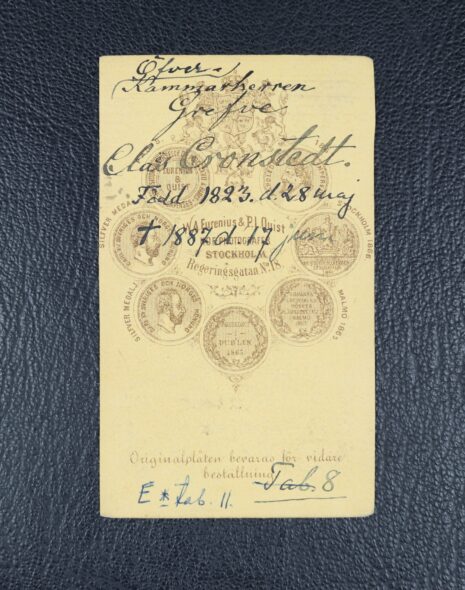 Öfver
Kammarherren
Grefve
Clas Cronstedt.
Född 1823. d. 28 maj
† 1887 d. 17 juni
EURENIUS
& QUIST
W.A. Eurenius & P.L. Quist
HOFPHOTOGRAFER
STOCKHOLM
Regeringsgatan No. 18
SILFVER MEDALJ
STOCKHOLM 1866
SILFVER MEDALJ
MALMO 1865
DUBLIN
1865
Originalplåten bevaras för vidare
beställning
Tab. 8
E * tab. 11.